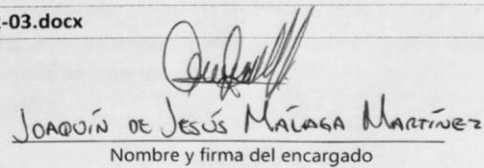 -03.docx
JOAQUÍN DE JESÚS MÁLAGA MARTÍNEZ
Nombre y firma del encargado